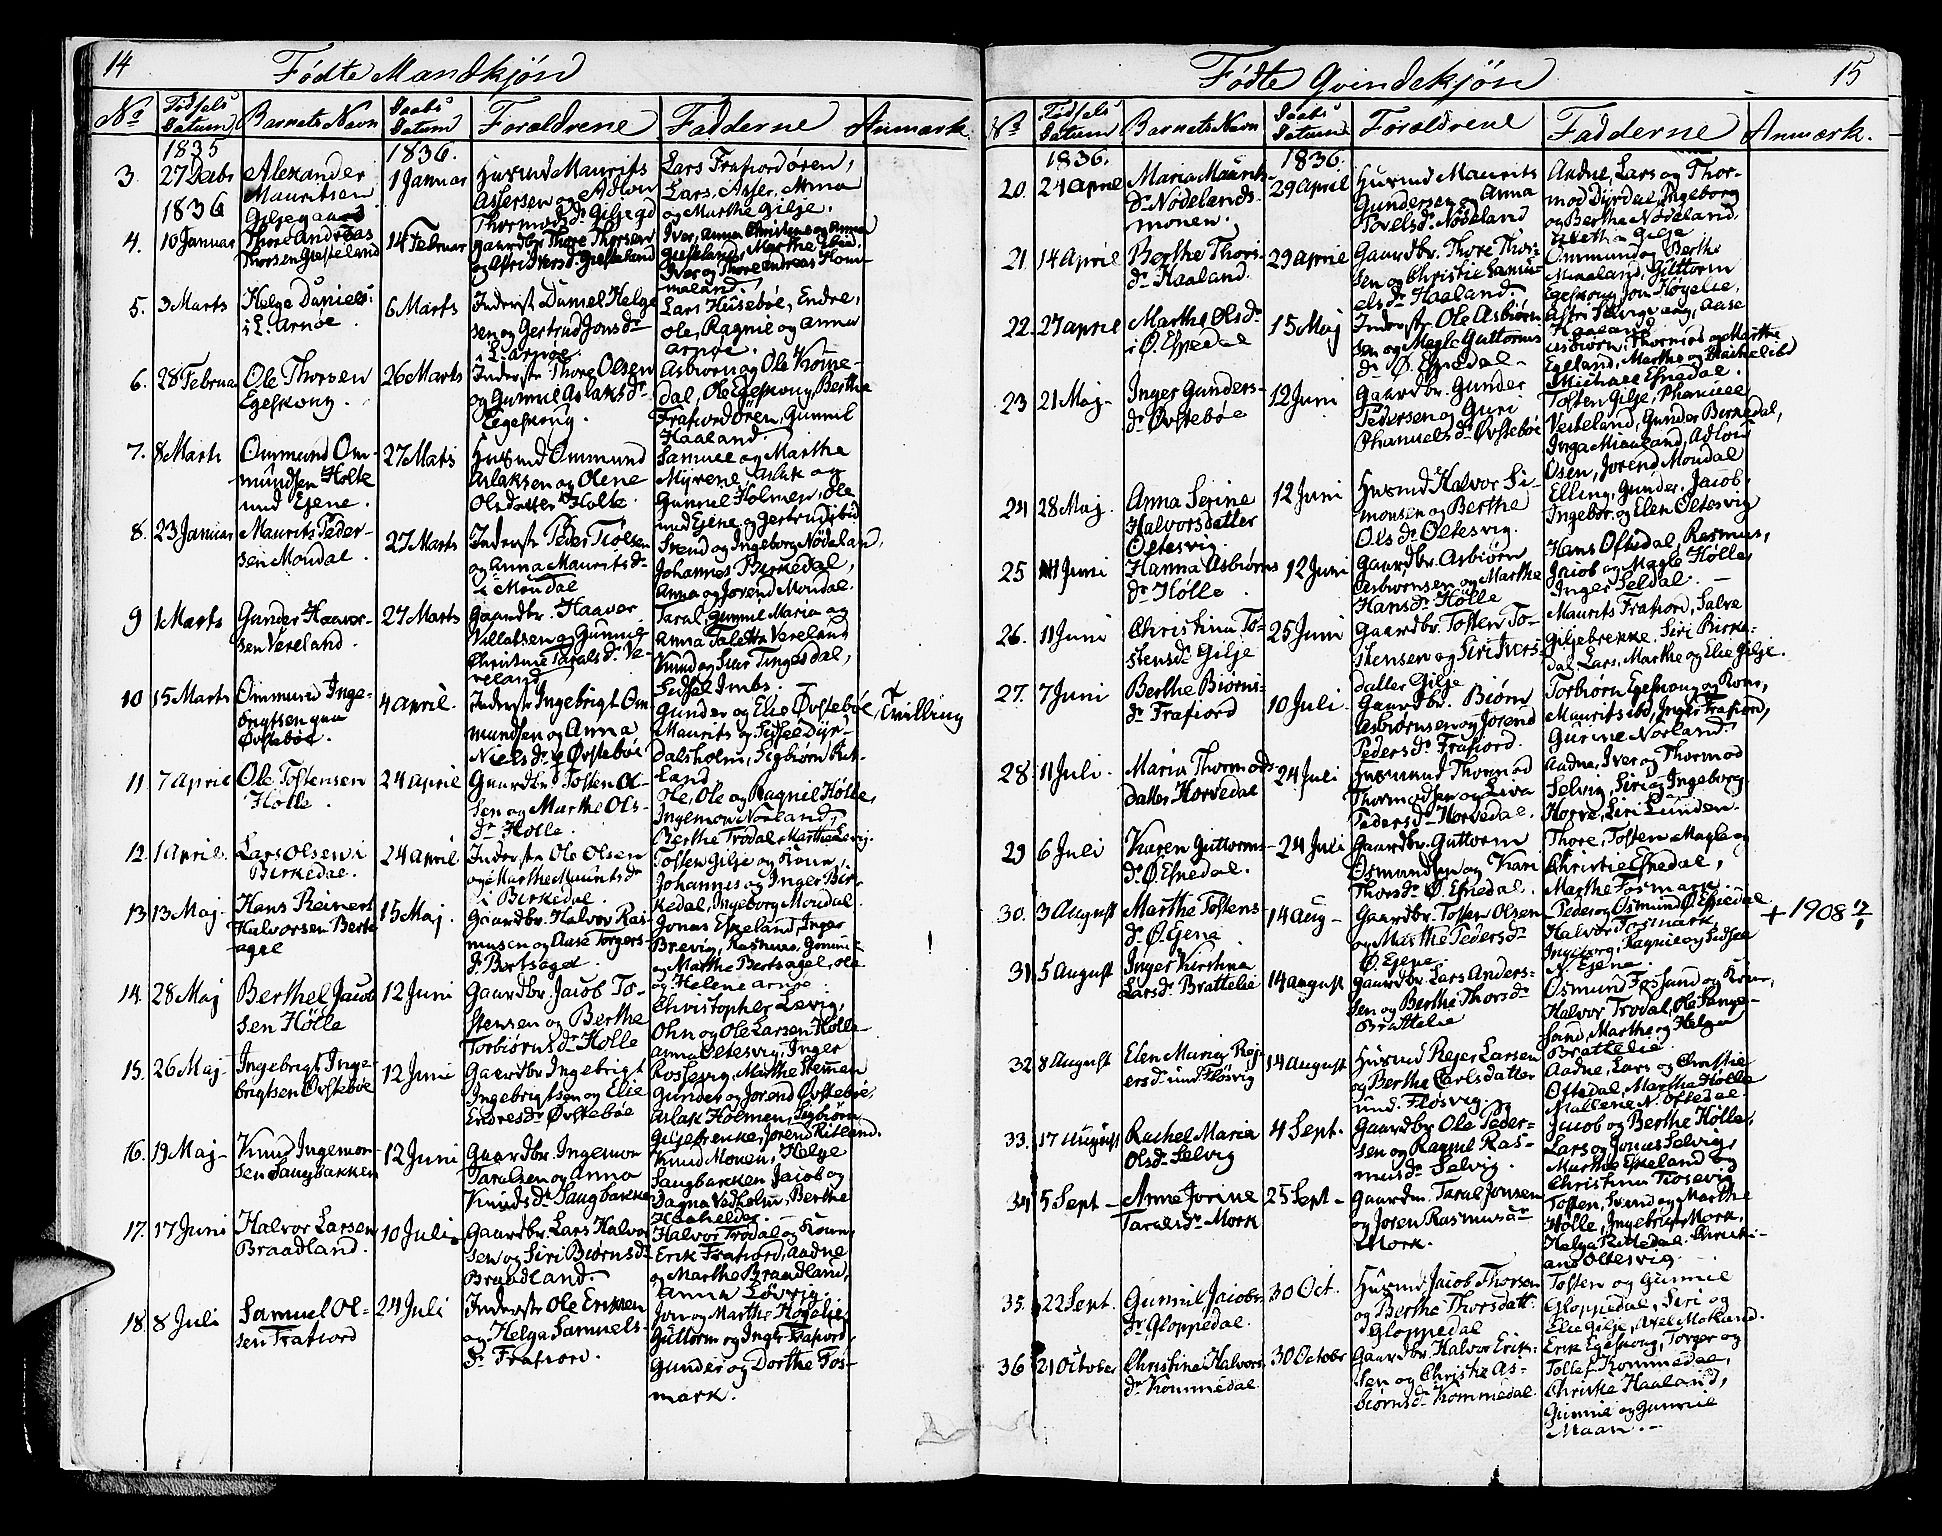 14
Fødte Mandkjøn
No
Fødsels Datum
Barnets Navn
Daabs Datum
Forældrene
Fadderne
Anmærk.
1835
1836.
3.
27 Decbr
Alexander
Mauritsen
Giljegaard
1 Januar
Husmd Maurits
Assersen og Adlou
Thormodsdr Giljegd
Lars Frafiordören,
Lars, Asser, Anna
og Marthe Gilje.
1836
4.
10 Januar
Thore Andreas
Thorsen Giesteland
14 Februar
Gaardbr. Thore Thorsen
Iver, Anna Christine og Anna
5.
3 Marts
Helge Daniels:
i L. Arnöe.
6 Marts
Inderste Daniel Helge
sen og Gertrud Jonsdr
i L. Arnöe.
Lars Husebøe, Endre,
Ole, Ragnil og Anna
Arnöe.
6.
28 Februar
Ole Thorsen
Egeskong.
26 Marts
Inderste Thore Olsen
og Gunnil Aslaksdr
Egeskong.
Asbiørn og Ole Kröme-
dal, Ole Egeskong, Berthe
Frafiordören, Gunnil
Haaland.
7.
8 Marts
Ommund Om-
mundsen Holte
und Eiene.
27 Marts
Husmd Ommund
Aslaksen og Olene
Olsdatter Holte.
Samuel og Marthe
Myrene, Aslak og
Gunnel Holmen, Ole
und Eiene og Gertrud ibid
8.
23 Januar
Maurits Peder-
sen Mondal
27 Marts
Inderste Peder Tiølsen
og Anna Mauritsdr
i Mondal
Svend og Ingeborg Nödeland,
Johannes Birkedal,
Anna og Jorend Mondal.
9
1 Marts
Gunder Haavor-
sen Vereland.
27 Marts
Gaardbr. Haavor
Villatsen og Gunnil
Christine Taralsdr Ve-
reland
Taral, Gunnil Maria og
Anna Taletta Vereland
Knud og Siur Tingesdal,
Sidsel Imbs
10
15 Marts
Ommund Inge-
brigtsen paa
Øvstebøe.
4 April.
Inderste Ingebrigt Om-
mundsen og Anna
Nielsdr i Øvstebøe
Gunder og Elie Øvstebøe,
Maurits og Sidsel Dyr-
dalsholm, Sigbiørn Rit-
land
Tvilling
11
7 April
Ole Tostensen
Hölle.
24 April
Gaardbr. Tosten Ol-
sen og Marthe Ols-
dr Hölle.
Ole, Ole og Ragnil Hölle,
Ingemor Norland,
Berthe Trodal, Marthe Levig.
12.
1 April.
Lars Olsen i
Birkedal.
24 April
Inderste Ole Olsen
og Marthe Mauritsdr
i Birkedal.
Tosten Gilje og Kone,
Johannes og Inger Bir-
kedal, Ingeborg Mondal.
13
13 Maj
Hans Reinert
Halvorsen Berts-
agel
15 Maj.
Gaardbr. Halvor Ras-
musen og Aase Torgers-
dr Bertsagel.
Jonas Espeland, Inger
Brevig, Rasmus, Gunnil
og Marthe Bertsagel, Ole
og Helene Arnöe
14.
28 Maj
Berthel Jacob
sen Hölle
12 Juni
Gaardbr. Jacob To-
stensen og Berthe
Torbiørnsdr Hölle
Christopher Levig,
Ohn og Ole Larsen Hölle
Anna Oltesvig, Inger
15.
26 Maj
Ingebrigt Inge-
brigtsen Øvstebøe
12 Juni
Gaardbr. Ingebrigt
Ingebrigtsen og Elie
Endresdr Øvstebøe
Rossevig, Marthe
Gunder og Jorend Øvstebøe,
Aslak Holmen, Sigbiørn
Giljebrenke, Jorend Ritland.
16.
19 Maj
Knud Ingemor-
sen Saugbakken
12 Juni
Gaardbr. Ingemor
Taralsen og Anna
Knudsdr Saugbakke
Knud Monen, Helge
Saugbakken Jacob og
Dagna Vadholm, Berthe
17.
17 Juni
Halvor Larsen
Braadland.
10 Juli.
Gaardbr. Lars Halvor
sen og Siri Biørnsdr
Braadland.
Halvor Trodal og Kone,
Erik Frafiord, Aadne
og Marthe Braadland,
Anna Lövvig.
18.
8 Juli
Samuel Ol-
sen Frafiord
24 Juli
Inderste Ole Eriksen
og Helga Samuels-
dr Frafiord.
Jon og Marthe Høgelie,
Guttorm og Inger Frafiord,
Gunder og Dorthe Fos-
mark.
15
Fødte Qvindekjøn
No
Fødsels Datum
Barnets Navn
Daabs Datum
Forældrene
Fadderne
Anmærk.
1836.
1836.
20.
24 April
Maria Maurits-
dr Nödelands-
monen.
29 April
Husmd Maurits
Gundersen og Anna
Povelsdr Nödeland
Aadne, Lars og Thor-
mod Dyrdal, Ingeborg
og Berthe Nödeland,
Gilje
21.
14 April
Berthe Thors-
dr Haaland.
29 April
Gaardbr. Thore Thor-
sen og Christie Samu-
elsdr Haaland.
Ommund og Berthe
Miaaland, Guttorm
Egeskong, Jon Høgelie,
Haaland
22.
27 April
Marthe Olsdr
i Ø. Espedal
15 Maj
Inderste Ole Asbiørn
sen og Magle Guttorms
dr Ø. Espedal.
Asbiørn, Thormod og Marthe
Egeland, Marthe og Rachel ibd
Michael Espedal.
23
21 Maj
Inger Gunders-
dr Øvstebøe
12 Juni
Gaardbr. Gunder
Pedersen og Guri
Phanuelsdr Øvstebøe
Tosten Gilje, Phanuel
Veeteland, Gunder Birkedal,
Inga Miaaland, Adlou
Osen, Jorend Mondal
24
28 Maj.
Anna Serine
Halvorsdatter
Oltesvig.
12 Juni
Husmd Halvor Si-
monsen og Berthe
Olsdr Oltesvig.
Elling, Gunder, Jacob,
Ingebor. og Elen Oltesvig
25
11 Juni
Hanna Asbiørns
dr Hölle.
12 Juni
Gaardbr. Asbiørn
Asbiørnsen og Marthe
Hansdr Hölle
Hans Oftedal, Rasmus,
Jacob og Magle Hölle,
Inger Seldal.
26.
11 Juni
Christina To-
stensdr Gilje
25 Juni
Gaardbr. Tosten To-
stensen og Siri Ivers-
datter Gilje
Maurits Frafiord, Salve
Giljebrekke, Siri Birke-
dal, Lars, Marthe og Elie Gilje.
27.
7 Juni
Berthe Biørns-
dr Frafiord
10 Juli.
Gaardbr. Biørn
Asbiørnsen og Jorend
Pedersdr Frafiord.
Torbiørn Egeskong og Kone,
Maurits ibd, Inger Frafiord,
Gurine Norland.
28
11 Juli.
Maria Thormods-
datter Horvedal
24 Juli
Husmand Thormod
Thormodsen og Liva
Pedersdr Horvedal.
Aadne, Iver og Thormod
Selvig, Siri og Ingeborg
Horve, Siri Lunden.
29
6 Juli
Karen Guttorms-
dr Ø. Espedal.
24 Juli
Gaardbr. Guttorm
Osmundsen og Kari
Thorsdr Ø. Espedal.
Thore, Tosten Magle og
Christie Espedal,
Marthe Fosmark.
30.
3 August
Marthe Tostens-
dr Ø. Eiene
14 Aug
Gaardbr. Tosten Olsen
og Marthe Pedersdr
Ø. Eiene.
Peder og Osmund Ø. Espedal
Halvor Fosmark,
Ingeborg, Ragnil og Sidsel
N. Eiene.
+ 1908 17/1
31.
5 August
Inger Kirstina
Larsdr Brattelie
14 August
Gaardbr. Lars Anders-
sen og Berthe Thorsdr
Brattelie
Osmund Fossand og Kone,
Halvor Trodal, Ole Hange-
Sand, Marthe og Helga
Brattelie.
32
8 August
Elen Maria Rej-
ersdr und. Fløsvig
14 August
Husmd Rejer Larsen
og Berthe Carlsdatter
und. Fløsvig.
Aadne, Lars og Christie
Oftedal, Marthe Hölle
Mallene N. Oftedal.
33.
17 August
Rachel Maria
Olsdr Selvig
4 Sept.
Gaardbr. Ole Peder-
sen og Ragnil Ras-
musdr Selvig.
Jacob og Berthe Hölle,
Lars og Jonas Selvig,
Marthe Espeland og
Christina Tiosevig
34
5 Sept
Anne Jorine
Taralsdr Mork
25 Sept
Gaardm. Taral Jonsen
og Joren Rasmusdr
Mork.
Tosten, Svend og Marthe
Hölle, Ingebrigt Mork,
Helga Rettedal, Christi-
and Oltesvig
35.
22 Sept.
Gunnil Jacobs-
dr Gloppedal.
30 Oct.
Husmd Jacob Thorsen
og Berthe Thorsdatt.
Gloppedal
Tosten og Gunnil
Gloppedal, Siri og
Elie Gilje, Axel Motland.
36
21 October
Christine Halvors-
dr Kommedal
30 Octobr
Gaardbr. Halvor Erik-
sen og Christie As-
biørnsdr Kommedal
Erik Egeskong, Torger og
Tollef Kommedal,
Christie Haaland,
Gunnil og Gunnil
Maan.